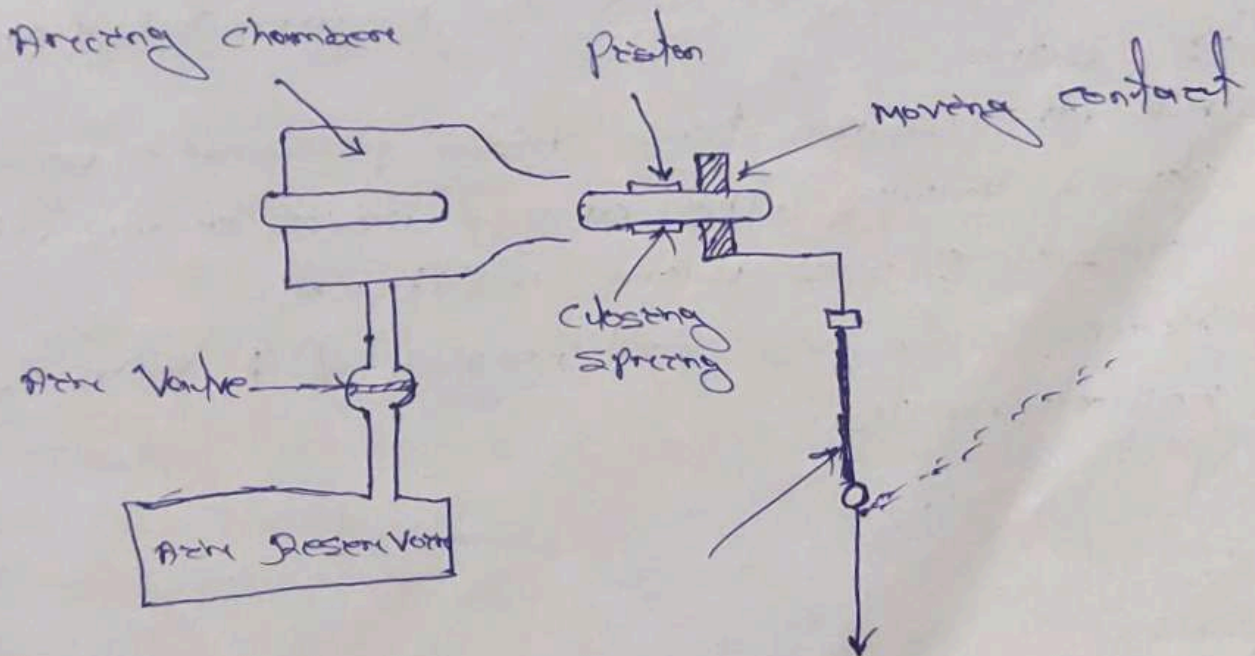 Arcing Chamber
Piston
Moving contact
Closing
Spring
Air Valve
Air Reservoir